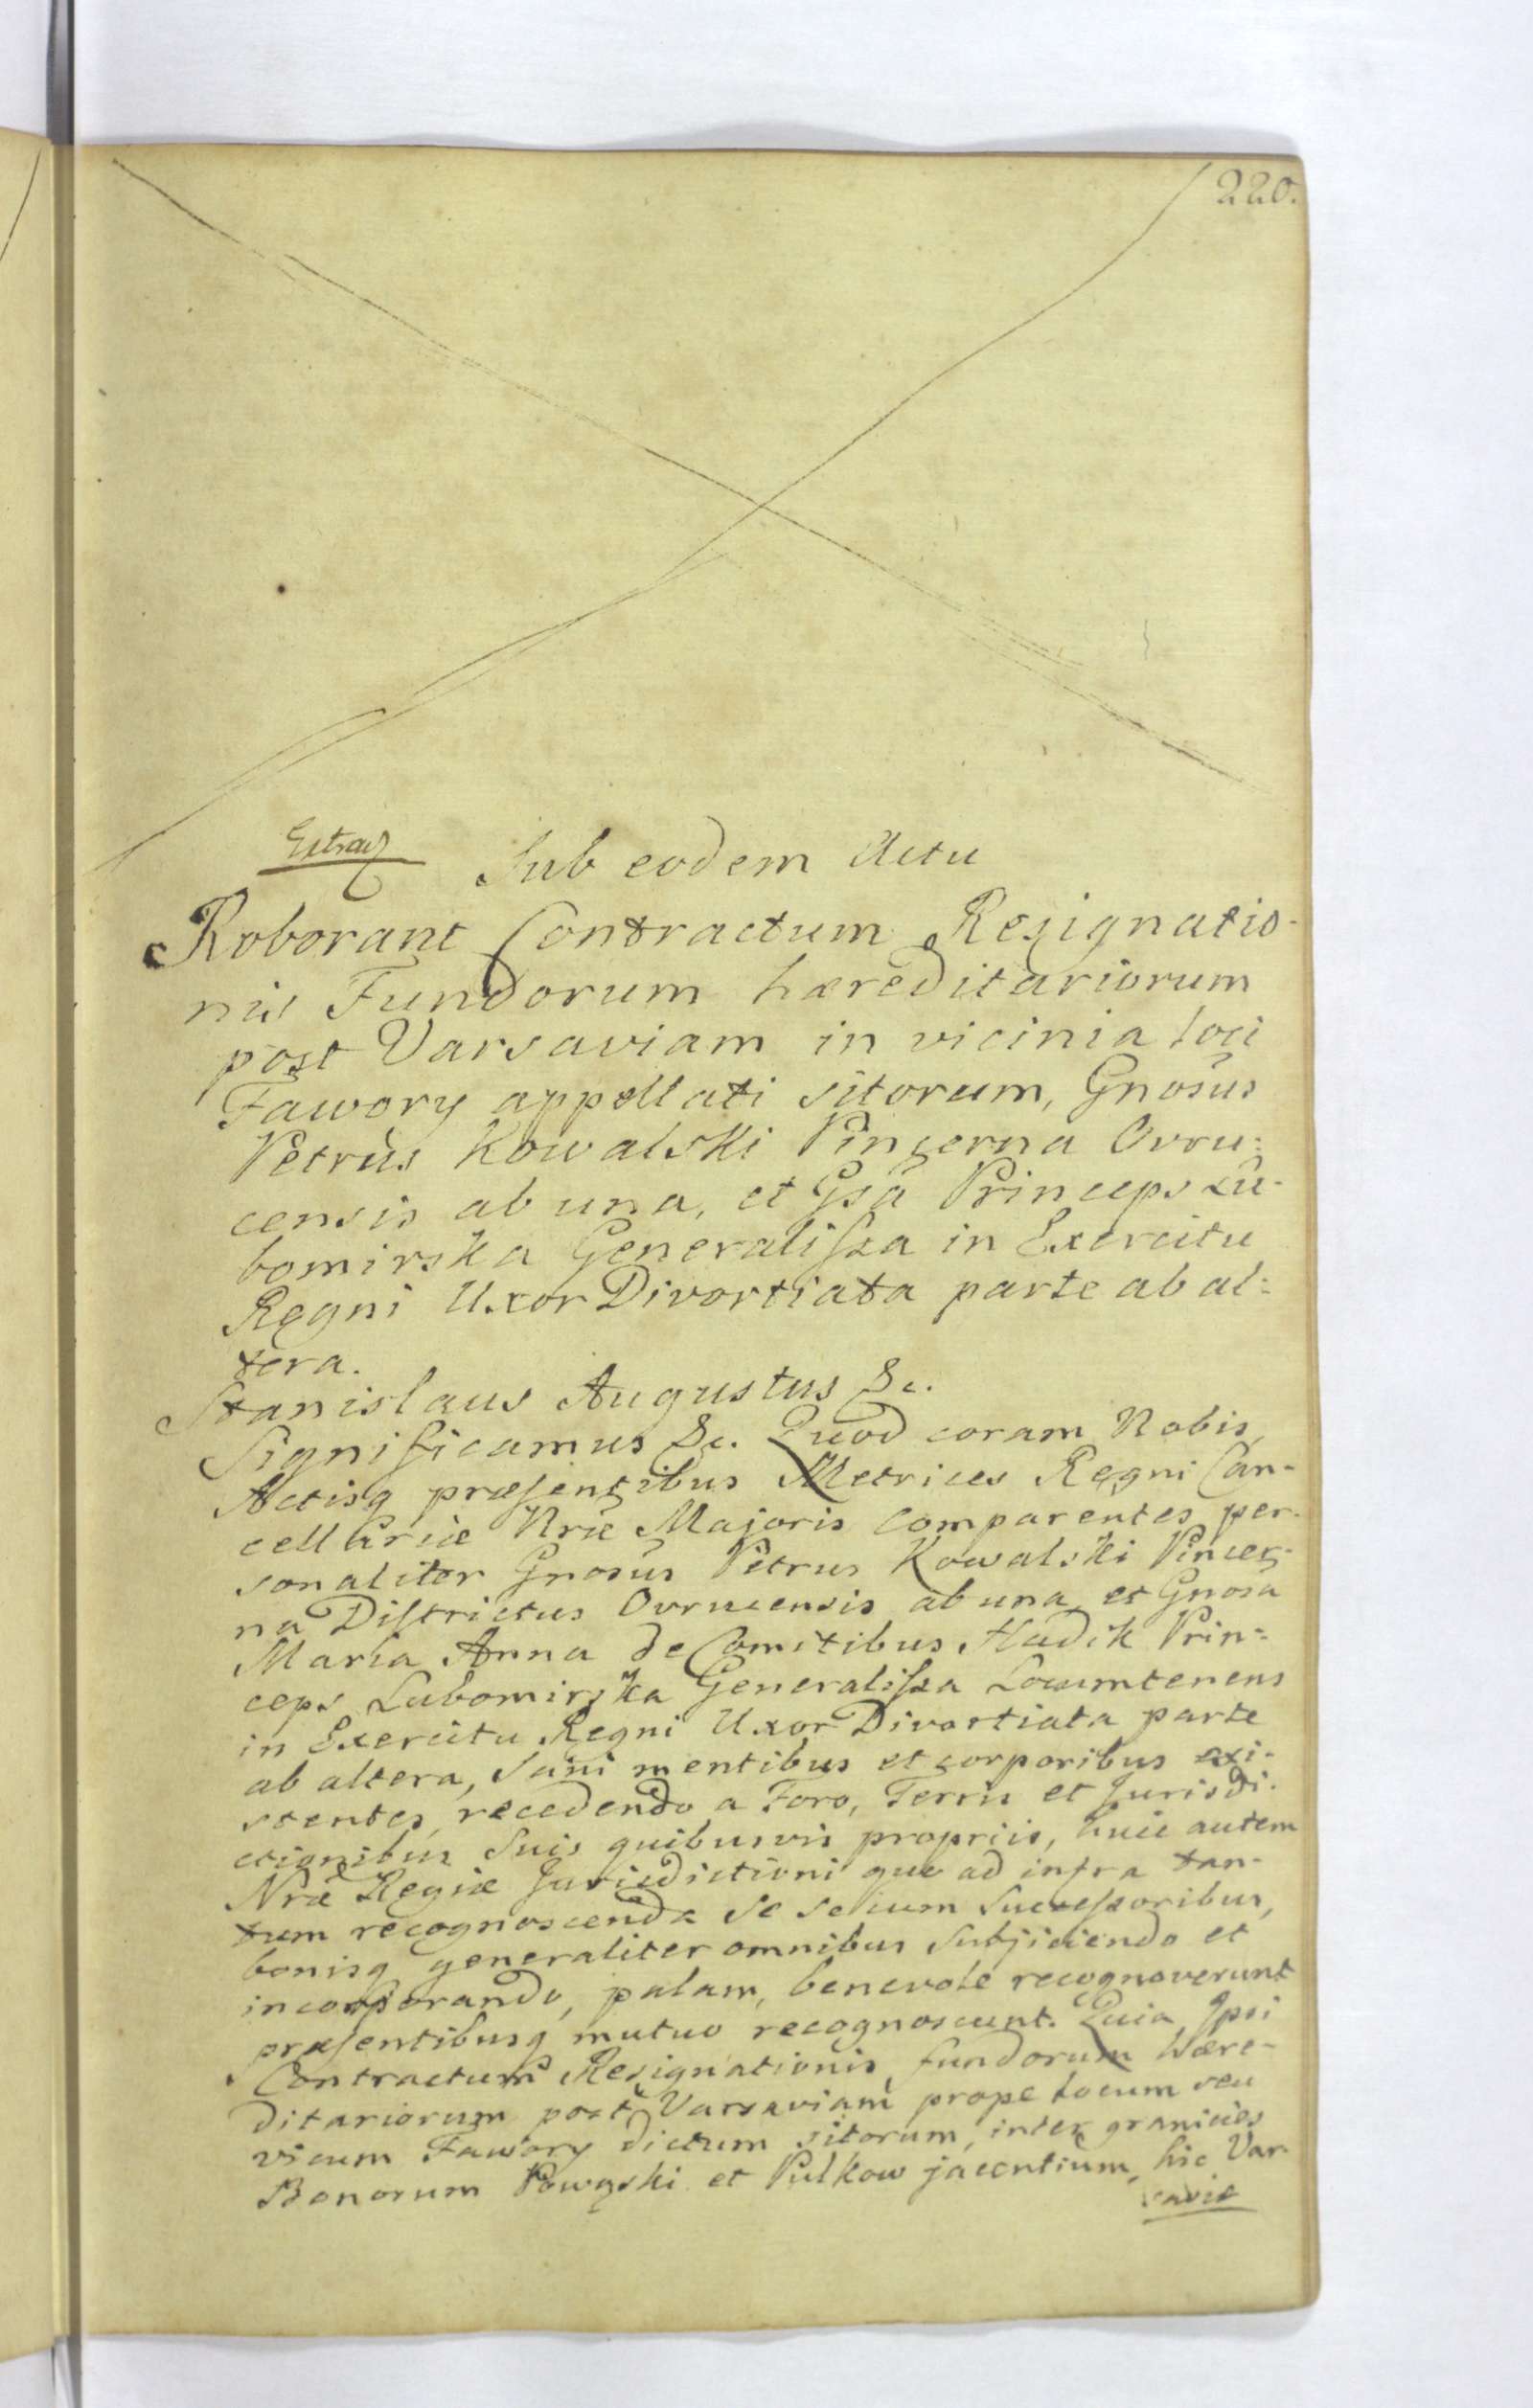 220.
Extrad
Sub eodem Actu
Roborant Contractum Resignatio-
nis Fundorum hæreditariorum
post Varsaviam in vicinia loci
Fawory appellati sitorum, Gnosus
Petrus Kowalski Pincerna Ovru:
censis ab una, et Gsa Princeps Lu-
bomirska Generalissa in Exercitu
Regni Uxor Divortiata parte ab al:
tera.
Stanislaus Augustus &c.
Significamus &c. Quod coram Nobis,
Actisq præsentibus Metrices Regni Can-
cellariæ Nræ Majoris Comparentes per-
sonaliter Gnosus Petrus Kowalski Pincer-
na Districtus Ovrucensis ab una et Gnosa
Maria Anna de Comitibus Hadik Prin-
ceps Lubomirska Generalissa Locumtenens
in Exercitu Regni Uxor Divortiata parte
ab altera, Sani mentibus et corporibus exi-
stentes, recedendo a Foro, Terris et Jurisdi-
ctionibus Suis quibusvis propriis, huic autem
Nræ Regiæ Jurisdictioni quo ad infra tan-
tum recognoscenda se secum Successoribus,
bonisq generaliter omnibus Subjiciendo et
incorporando, palam, benevole recognoverunt
præsentibusq mutuo recognoscunt. Quia Ipsi
Contractum Resignationis fundorum Hære-
ditariorum post Varsaviam prope locum seu
vicum Fawory dictum sitorum, inter granicies
Bonorum Powązki et Pulkow jacentium, hic Var-
saviæ